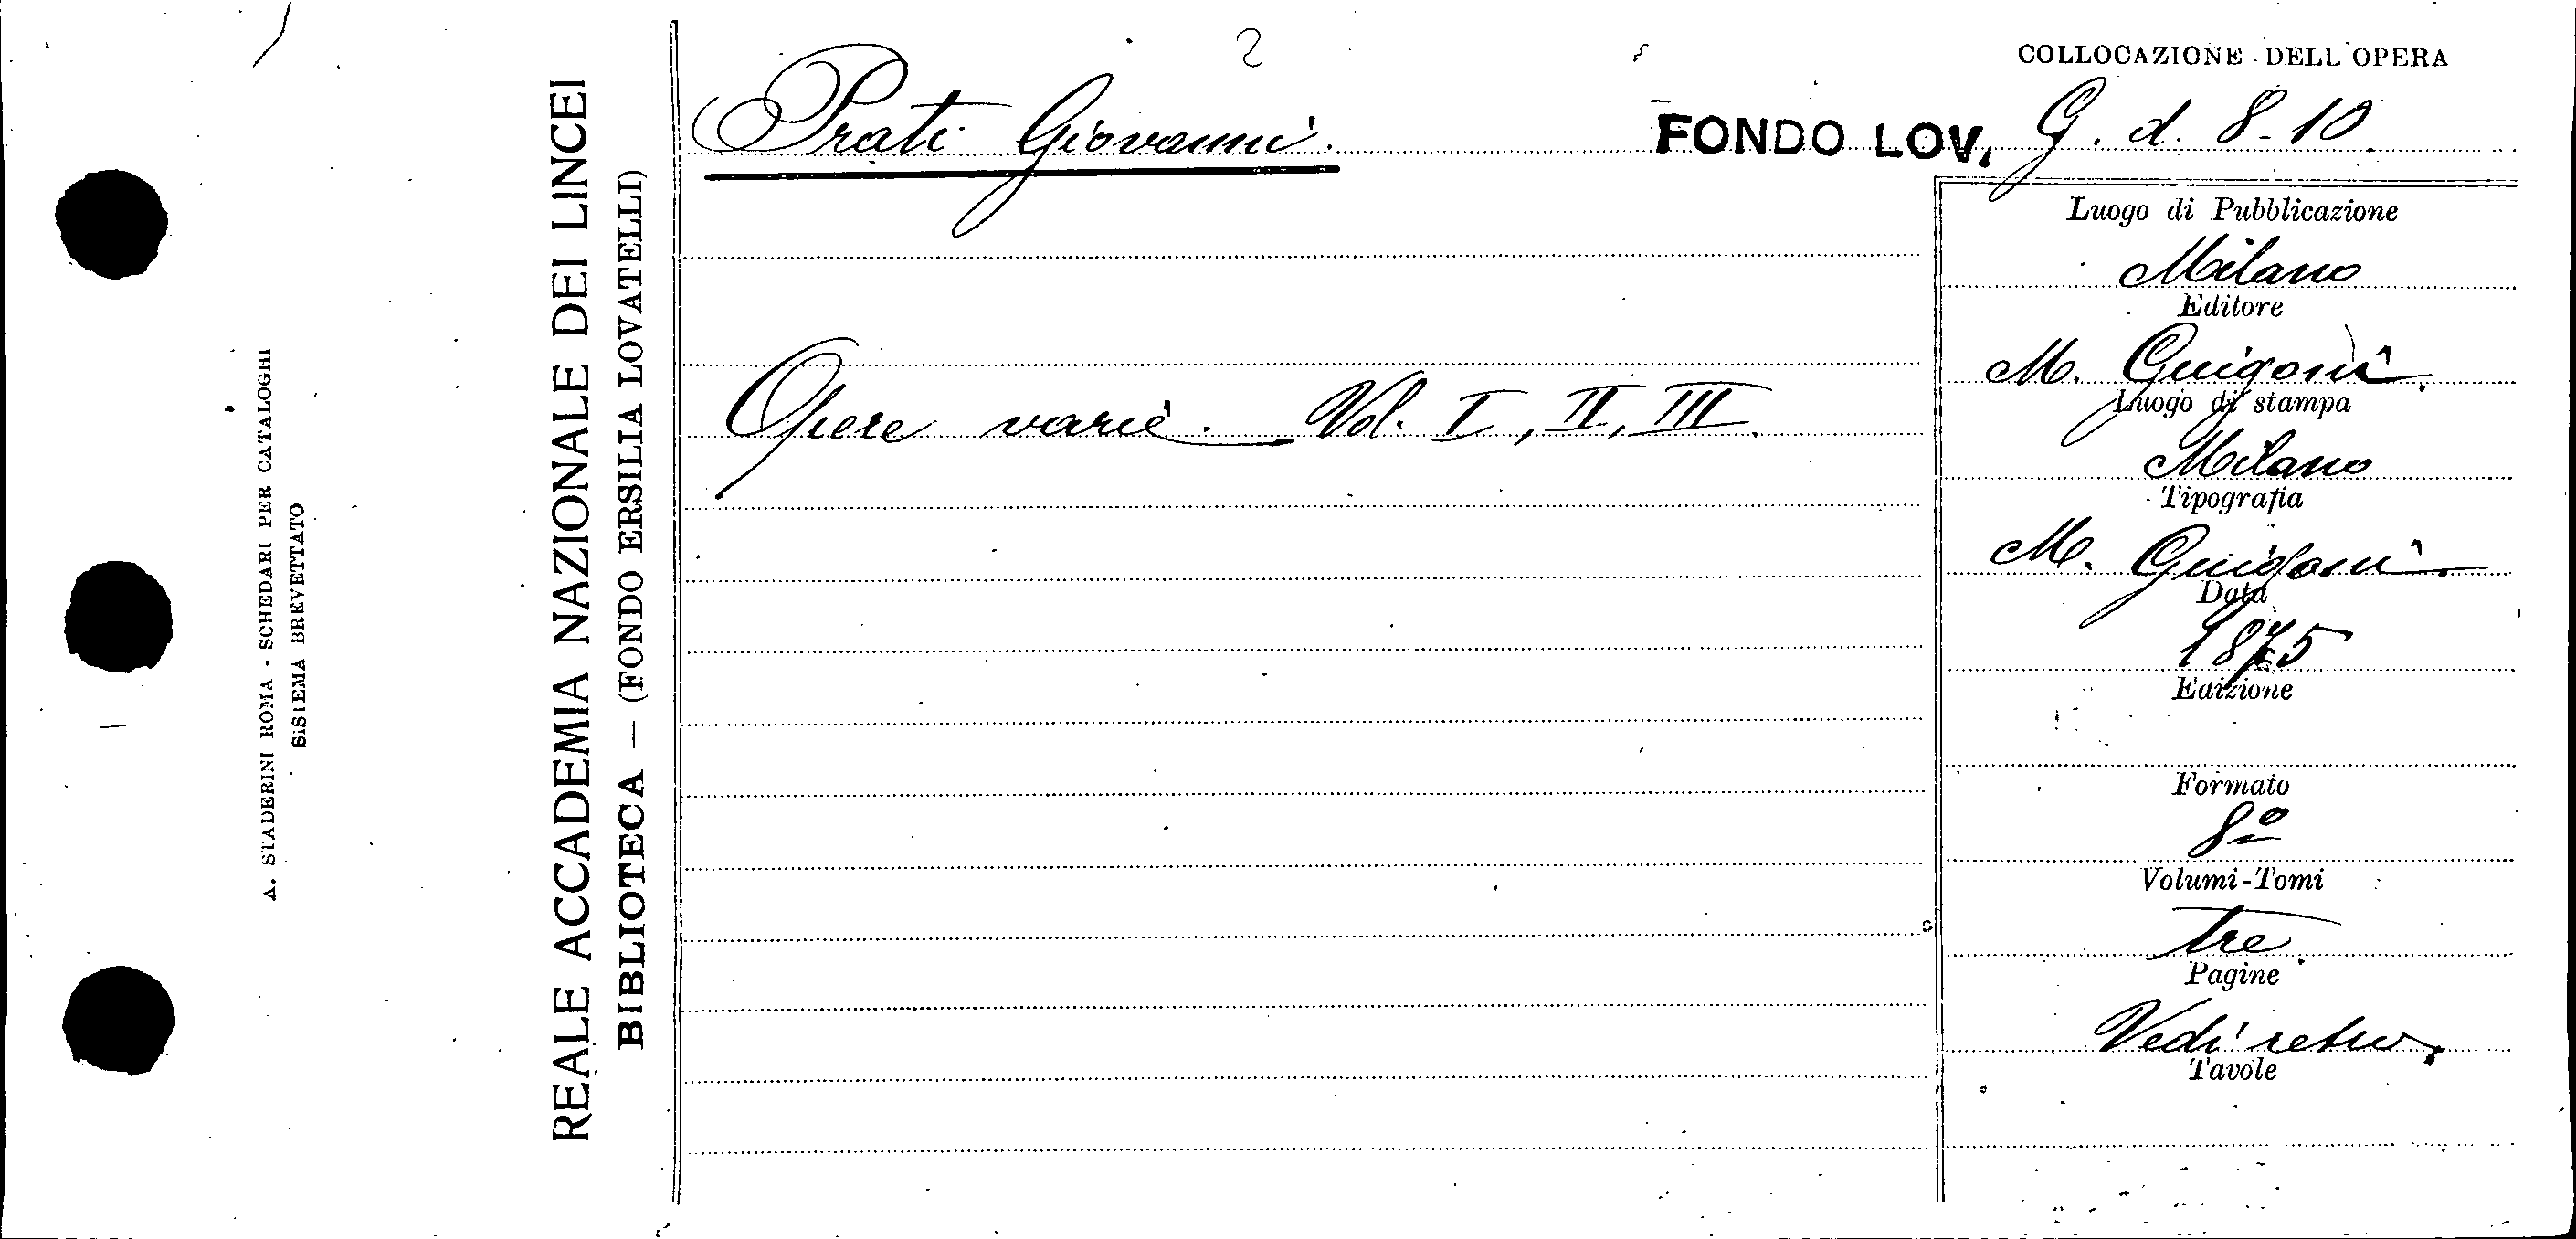 A. STADERINI ROMA - SCHEDARI PER CATALOGHI
SISTEMA BREVETTATO
REALE ACCADEMIA NAZIONALE DEI LINCEI
BIBLIOTECA — (FONDO ERSILIA LOVATELLI)
2
COLLOCAZIONE DELL'OPERA
Prati Giovanni. FONDO LOV. G. d. 8-10.
Luogo di Pubblicazione
Milano
Editore
M. Guigoni.
Opere varie. — Vol. I, II, III.
Luogo di stampa
Milano
Tipografia
M. Guigoni.
Data
1875
Edizione
Formato
8º
Volumi-Tomi
tre.
Pagine
Vedi retro.
Tavole